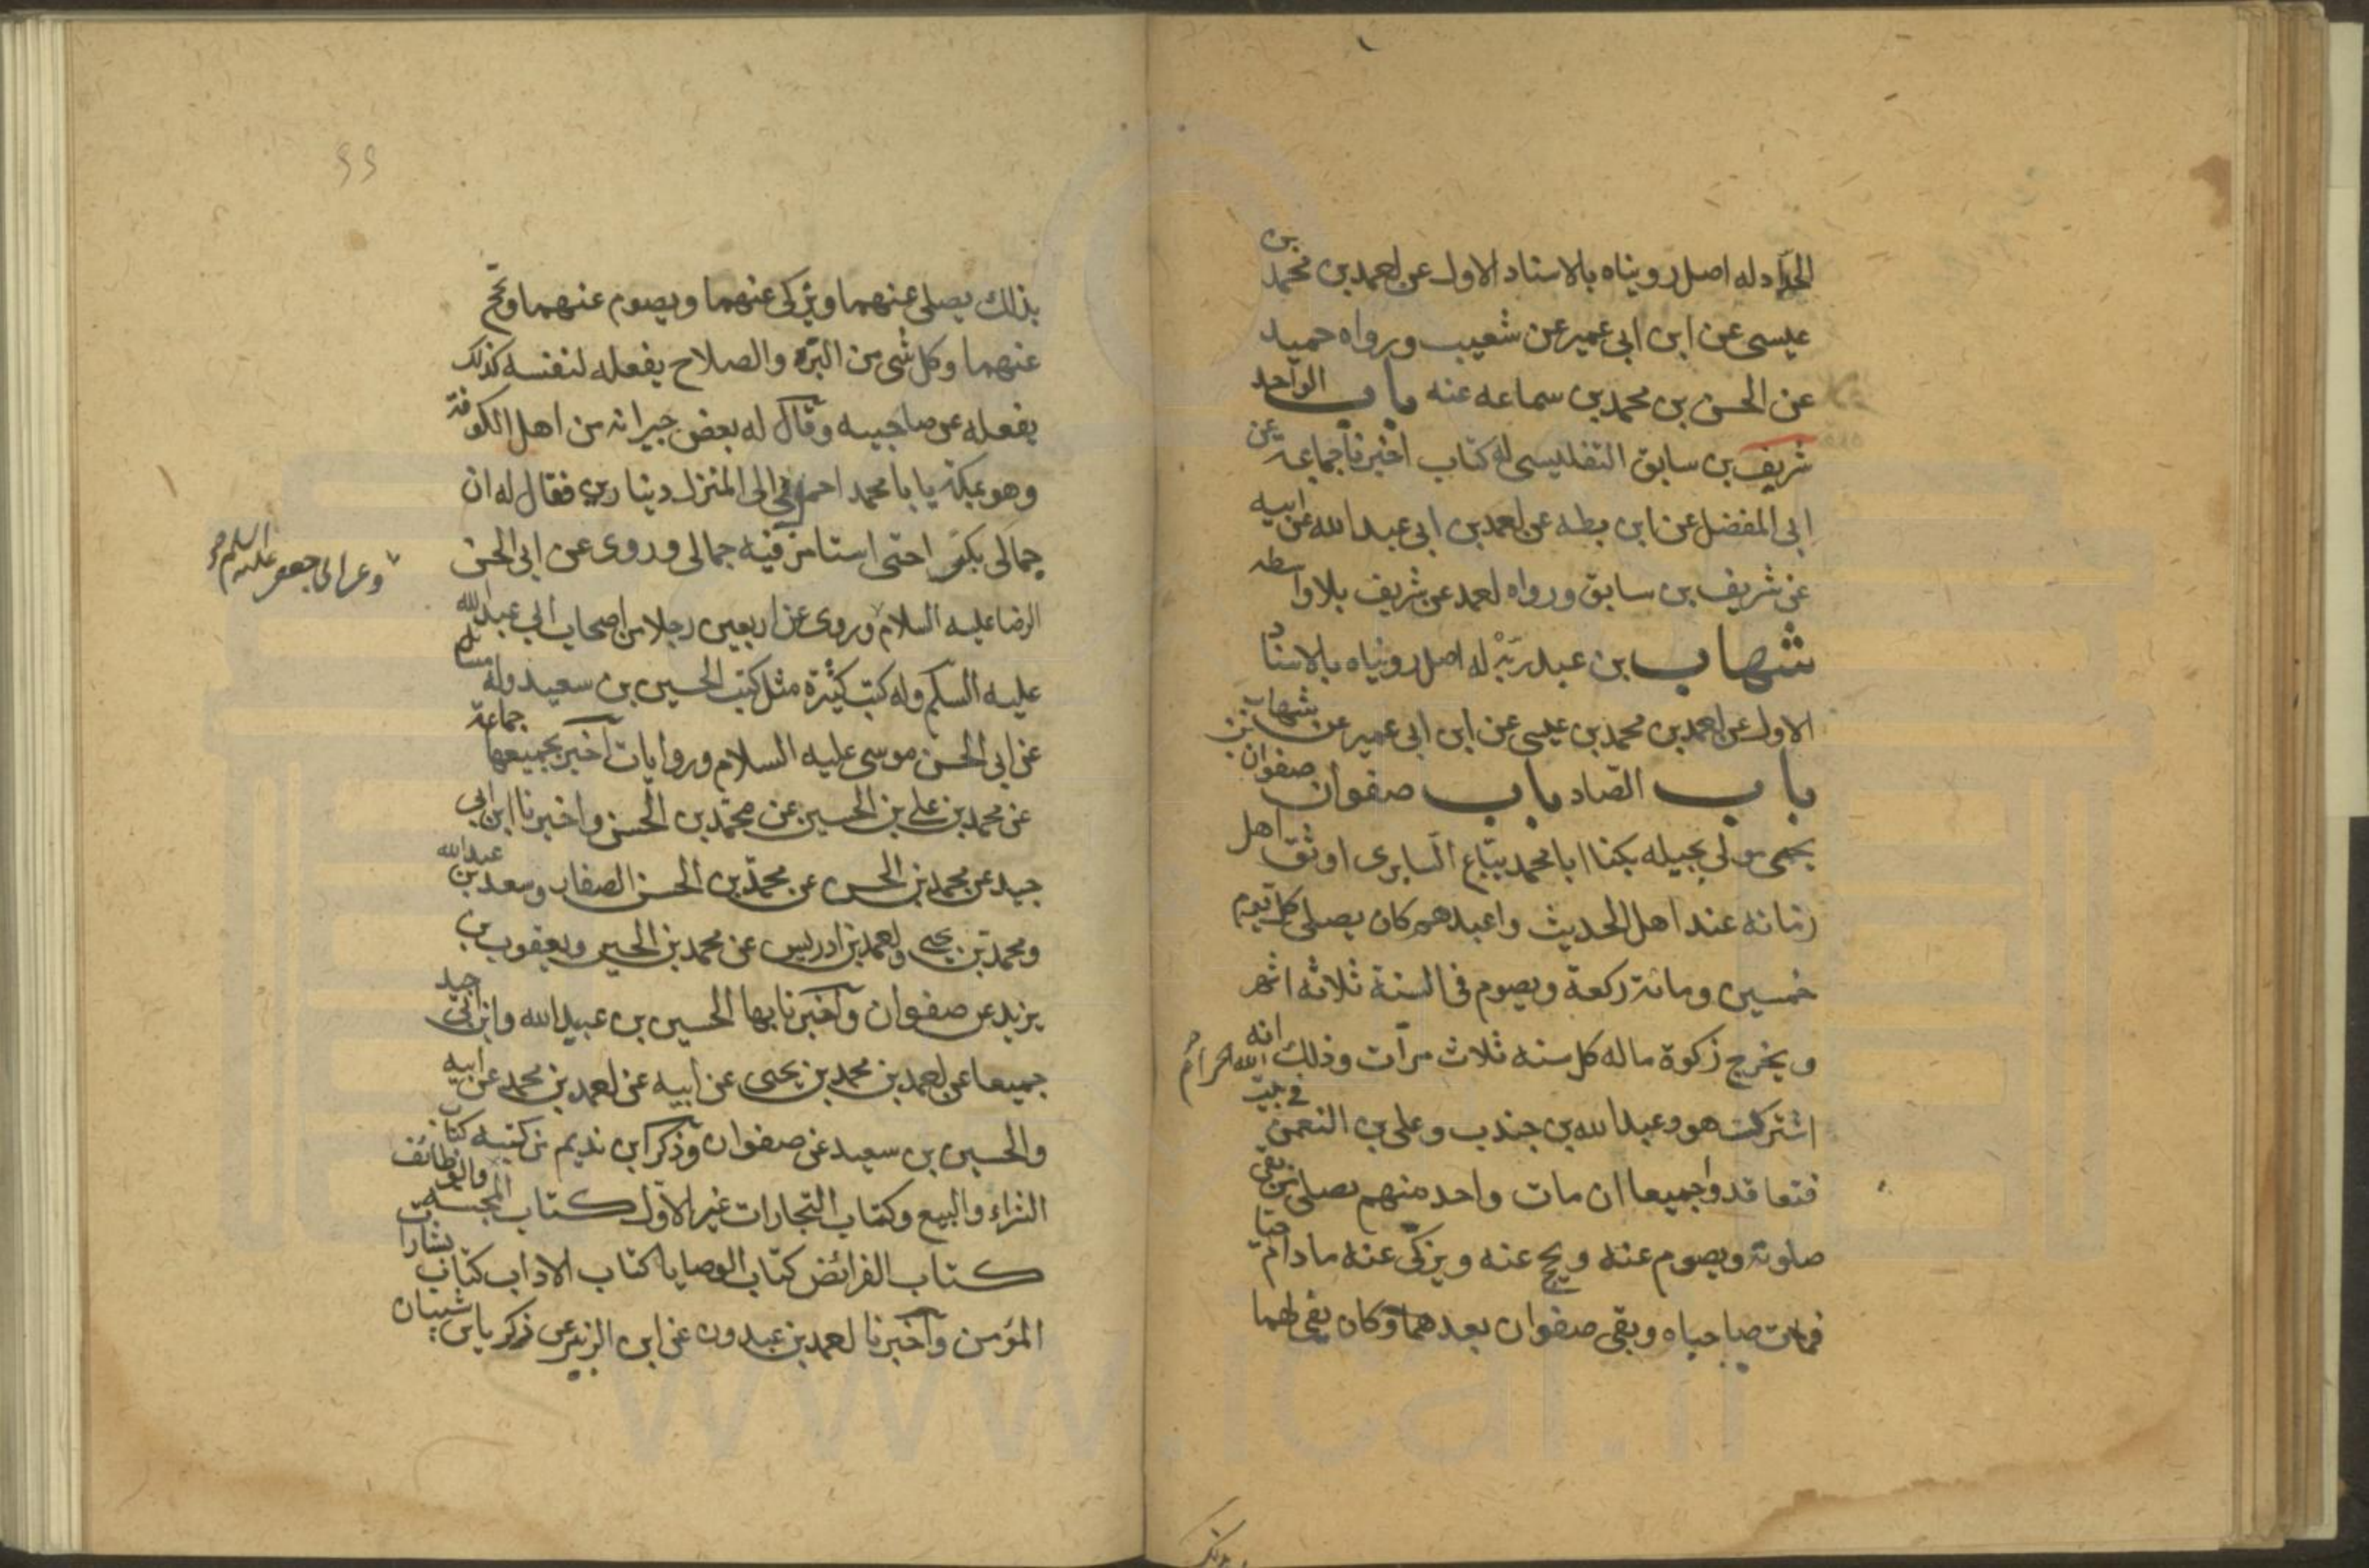 الحداد له اصل رويناه بالاسناد الاول عن احمد بن محمد بن
عيسى عن ابن ابى عمير عن شعيب ورواه حميد
عن الحسن بن محمد بن سماعه عنه باب الواحد
شريف بن سابق التفليسى له كتاب اخبرنا جماعة عن
ابى المفضل عن ابن بطه عن احمد بن ابى عبد الله عن ابيه
عن شريف بن سابق ورواه احمد عن شريف بلا واسطه
شهاب بن عبد ربه له اصل رويناه بالاسناد
الاول عن احمد بن محمد بن عيسى عن ابن ابى عمير عن شهاب
باب الصّاد باب صفوان صفوان بن
يحيى مولى بجيله يكنا ابا محمد بيّاع السّابرى اوثق اهل
زمانه عند اهل الحديث واعبدهم كان يصلى كل يوم
خمسين ومائة ركعة ويصوم فى السنة ثلاثه اشهر
ويخرج زكوة ماله كل سنه ثلاث مرّات وذلك انه
اشترك هو وعبد الله بن جندب وعلى بن النعمن فى بيت الله الحرام
فتعاقدوا جميعا ان مات واحد منهم يصلى من بقى
صلوته ويصوم عنه ويحج عنه ويزكّى عنه مادام حيا
فمات صاحباه وبقى صفوان بعدهما وكان يفى لهما
بذلك يصلى عنهما ويزكى عنهما ويصوم عنهما ويحج
عنهما وكل شى من البرّ والصلاح يفعله لنفسه كذلك
يفعله عن صاحبيه وقال له بعض جيرانه من اهل الكوفة
وهو بمكة يابا محمد احمل لى الى المنزل دينارين فقال له ان
جمالى بكرّ احتى استامر فيه جمالى وروى عن ابى الحسن
الرضا عليه السلام وروى عن اربعين رجلا من اصحاب ابى عبد الله
وعن ابى جعفر عليه السلم
عليه السلم وله كتب كثيرة مثل كتب الحسين بن سعيد وله مسائل
عن ابى الحسن موسى عليه السلام وروايات اخبر بجميعها جماعة
عن محمد بن على بن الحسين عن محمّد بن الحسن واخبرنا ابن ابى
جيد عن محمد بن الحسن عن محمّد بن الحسن الصفار وسعد بن عبد الله
ومحمد بن يحيى واحمد بن ادريس عن محمد بن الحسين ويعقوب بن
يزيد عن صفوان واخبرنا بها الحسين بن عبيد الله وابن ابى جيد
جميعا عن احمد بن محمد بن يحيى عن ابيه عن احمد بن محمد عن ابيه
والحسين بن سعيد عن صفوان وذكر ابن نديم من كتبه كتاب
الشراء والبيع وكتاب التجارات غير الاوّل كتاب المحبة والوظائف
كتاب الفرائض كتاب الوصايا كتاب الاداب كتاب بشارات
المؤمن واخبرنا احمد بن عبدون عن ابن الزبير عن زكريا بن شيبان
www.ical.ir